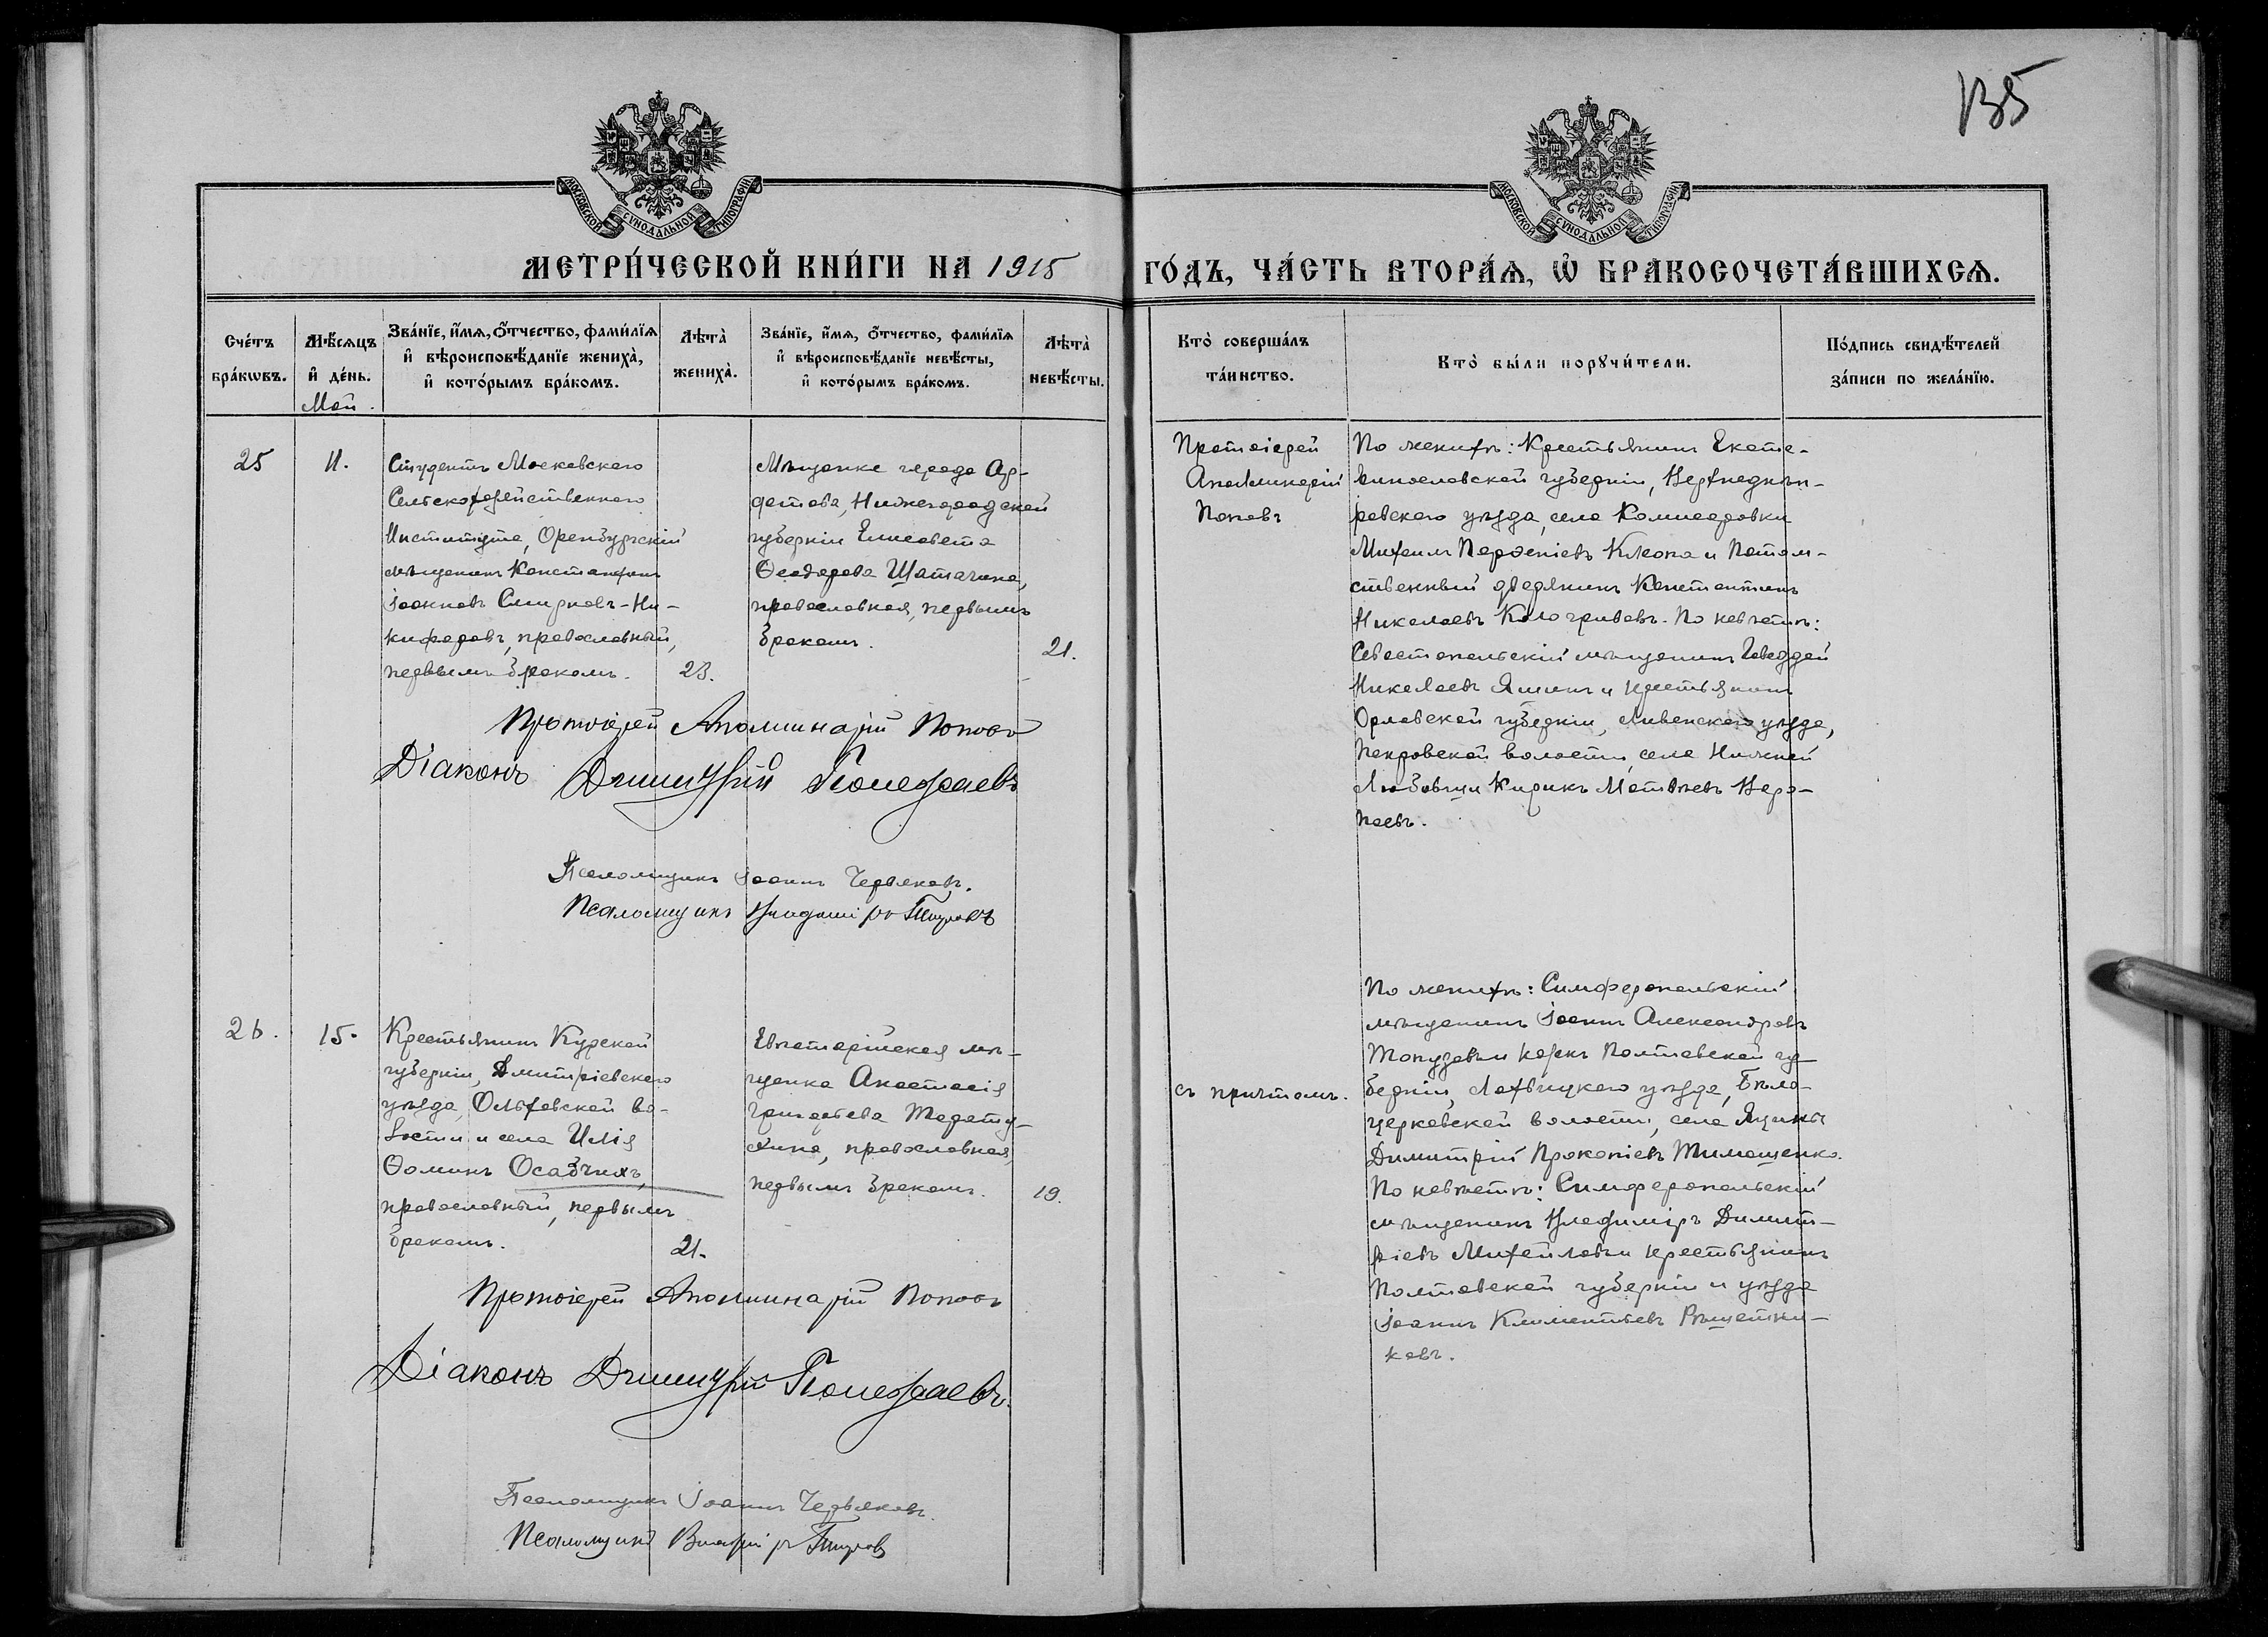 135
МОСКОВСКОЙ СУНОДАЛЬНОЙ ТИПОГРАФІИ
МОСКОВСКОЙ СУНОДАЛЬНОЙ ТИПОГРАФІИ
МЕТРИ́ЧЕСКОЙ КНИ́ГИ НА 1915
ГО́ДЪ, ЧА́СТЬ ВТОРА́Ѧ, Ѽ БРАКОСОЧЕТА́ВШИХСѦ.
Сче́тъ
бра́кѡвъ.
Мѣ́сяцъ
и де́нь.
Май.
Зва́нїе, и́мѧ, ѻ́тчество, фами́лїѧ
и вѣроисповѣ́данїе жениха̀,
и кото́рымъ бра́комъ.
Лѣта̀
жениха̀.
Зва́нїе, и́мѧ, ѻ́тчество, фами́лїѧ
и вѣроисповѣ́данїе невѣ́сты,
и кото́рымъ бра́комъ.
Лѣта̀
невѣ́сты.
Кто̀ соверша́лъ
та́инство.
Кто̀ бы́ли порꙋчи́тели.
По́дпись свидѣ́телей
за́писи по жела́нїю.
25
11.
Студентъ Московскаго
Сельскохозяйственнаго
Института, Оренбургскій
мѣщанинъ Константинъ
Іоанновъ Смирновъ-Ни-
кифоровъ, православный,
первымъ бракомъ.
23.
Мѣщанка города Ар-
датова, Нижегородской
губерніи Елисавета
Ѳеодорова Шатагина,
православная, первымъ
бракомъ.
21.
Протоіерей
Аполлинарій
Поповъ
По женихѣ: Крестьянинъ Екате-
ринославской губерніи, Верхнеднѣп-
ровскаго уѣзда, села Комисаровки
Михаилъ Парѳеніевъ Клюпа и Потом-
ственный дворянинъ Константинъ
Николаевъ Кологривовъ. По невѣстѣ:
Севастопольскій мѣщанинъ
Николаевъ Яшинъ и крестьянинъ
Орловской губерніи, Ливенскаго уѣзда,
Покровской волости, села Нижней
Любовши Кирикъ Матвѣевъ Воро-
паевъ.
Протоіерей Аполлинарій Поповъ
Діаконъ Димитрій Полежаевъ
Псаломщикъ Іоаннъ Червяковъ.
Псаломщикъ Владиміръ
26.
15.
Крестьянинъ Курской
губерніи, Дмитріевскаго
уѣзда, Ольховской во-
лости и села Илія
Ѳоминъ Осадчихъ,
православный, первымъ
бракомъ.
21.
Евпаторійская мѣ-
щанка Анастасія
Григорьева Тарату-
хина, православная,
первымъ бракомъ.
19.
съ причтомъ.
По женихѣ: Симферопольскій
мѣщанинъ Іоаннъ Александровъ
Топузовъ и казакъ Полтавской гу-
берніи, Лохвицкаго уѣзда, Бѣло-
церковской волости, села Яцины
Димитрій Прокопіевъ Тимошенко.
По невѣстѣ: Симферопольскій
мѣщанинъ Владиміръ Димит-
ріевъ Михайловъ и крестьянинъ
Полтавской губерніи и уѣзда
Іоаннъ Климентьевъ Рѣшетни-
ковъ.
Протоіерей Аполлинарій Поповъ
Діаконъ Димитрій Полежаевъ.
Псаломщикъ Іоаннъ Червяковъ.
Псаломщикъ Владиміръ